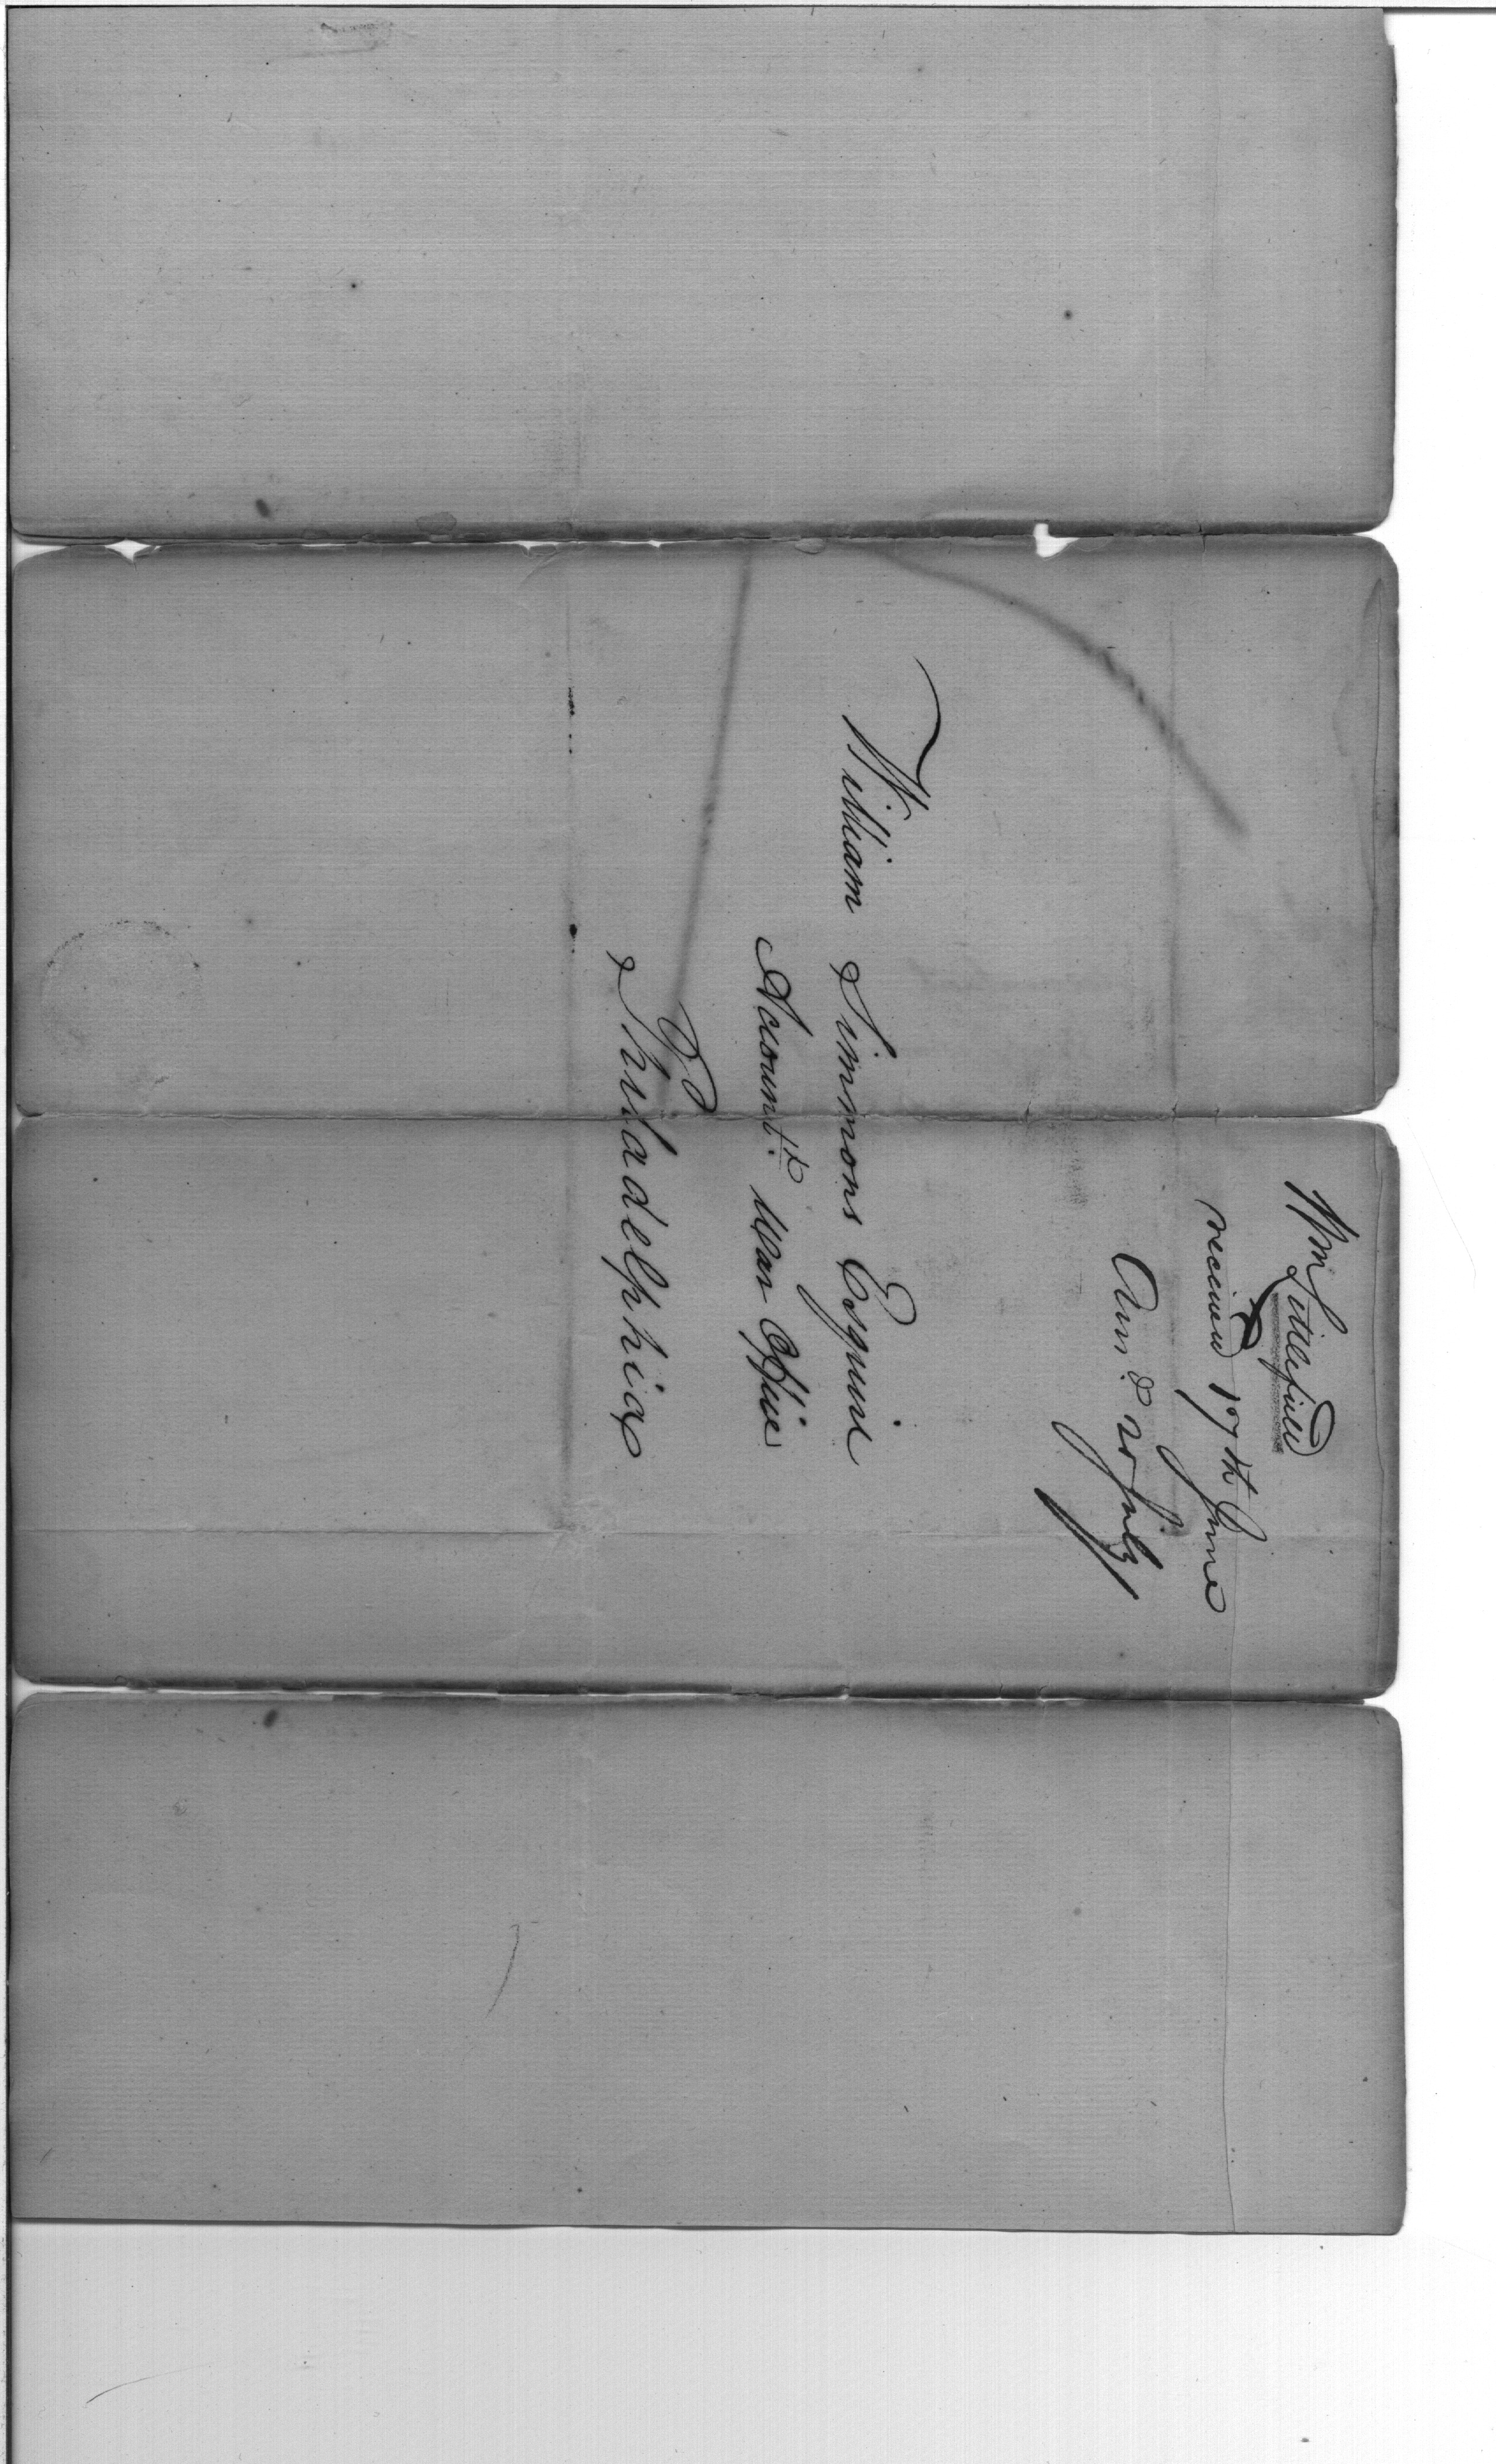 Wm Littlefield
received 17th June
Ans.d 20 July
William Simmons Esquire
Account.t War Office
Philadelphia